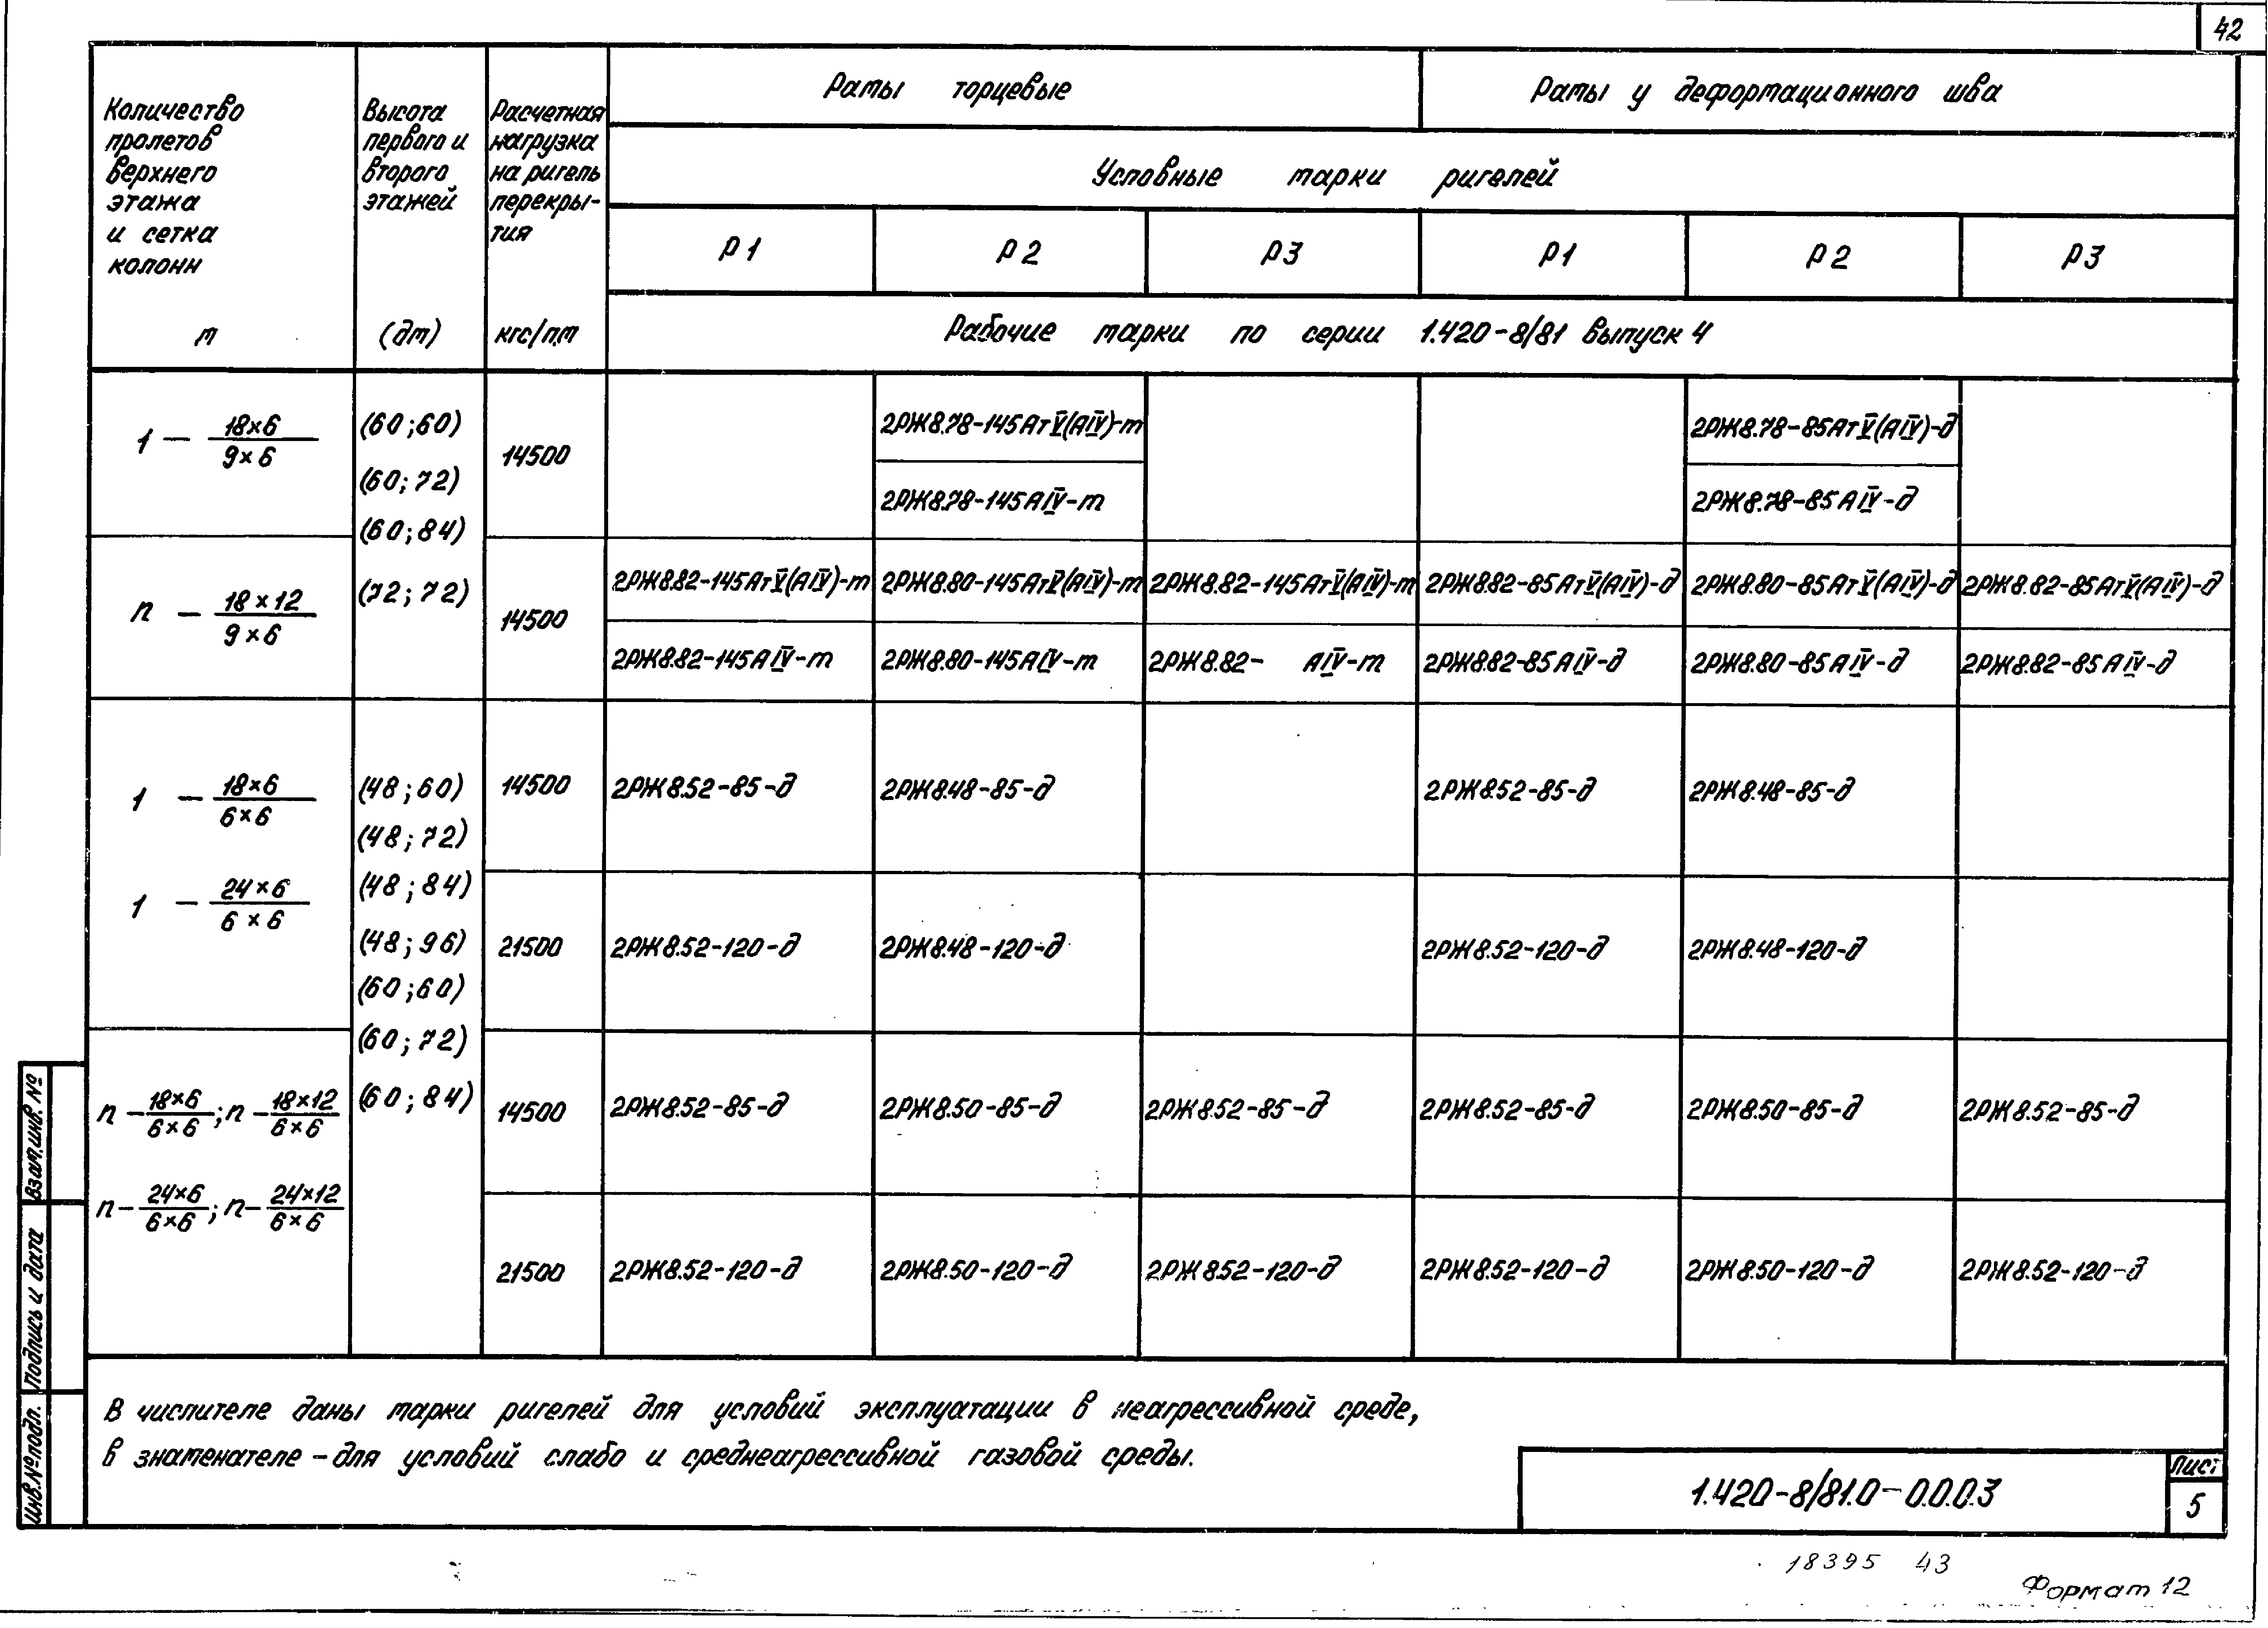 42
Количество
пролетов
верхнего
этажа
и сетка
колонн
м
Высота
первого и
второго
этажей
(дм)
Расчетная
нагрузка
на ригель
перекры-
тия
кгс/п.м
Рамы торцевые
Рамы у деформационного шва
Условные марки ригелей
Р1 Р2 Р3 Р1 Р2 Р3
Рабочие марки по серии 1.420-8/81 выпуск 4
1 — 18×6
9×6
(60;60)
(60;72)
(60;84)
14500
2РЖ8.78-145АтV(АIV)-т
2РЖ8.78-85АтV(АIV)-д
2РЖ8.78-145АIV-т
2РЖ8.78-85АIV-д
n — 18×12
9×6
(72;72)
14500
2РЖ8.82-145АтV(АIV)-т 2РЖ8.80-145АтV(АIV)-т 2РЖ8.82-145АтV(АIV)-т 2РЖ8.82-85АтV(АIV)-д 2РЖ8.80-85АтV(АIV)-д 2РЖ8.82-85АтV(АIV)-д
2РЖ8.82-145АIV-т 2РЖ8.80-145АIV-т 2РЖ8.82- АIV-т 2РЖ8.82-85АIV-д 2РЖ8.80-85АIV-д 2РЖ8.82-85АIV-д
1 — 18×6
6×6
1 — 24×6
6×6
(48;60)
(48;72)
(48;84)
(48;96)
(60;60)
(60;72)
(60;84)
14500 2РЖ8.52-85-д 2РЖ8.48-85-д 2РЖ8.52-85-д 2РЖ8.48-85-д
21500 2РЖ8.52-120-д 2РЖ8.48-120-д 2РЖ8.52-120-д 2РЖ8.48-120-д
n — 18×6
6×6 ; n — 18×12
6×6
n — 24×6
6×6 ; n — 24×12
6×6
14500 2РЖ8.52-85-д 2РЖ8.50-85-д 2РЖ8.52-85-д 2РЖ8.52-85-д 2РЖ8.50-85-д 2РЖ8.52-85-д
21500 2РЖ8.52-120-д 2РЖ8.50-120-д 2РЖ8.52-120-д 2РЖ8.52-120-д 2РЖ8.50-120-д 2РЖ8.52-120-д
В числителе даны марки ригелей для условий эксплуатации в неагрессивной среде,
в знаменателе – для условий слабо и среднеагрессивной газовой среды.
1.420-8/81.0-0.0.0.3
Лист
5
Взам.инв.№
Подпись и дата
Инв.№подл.
18395 43
Формат 12